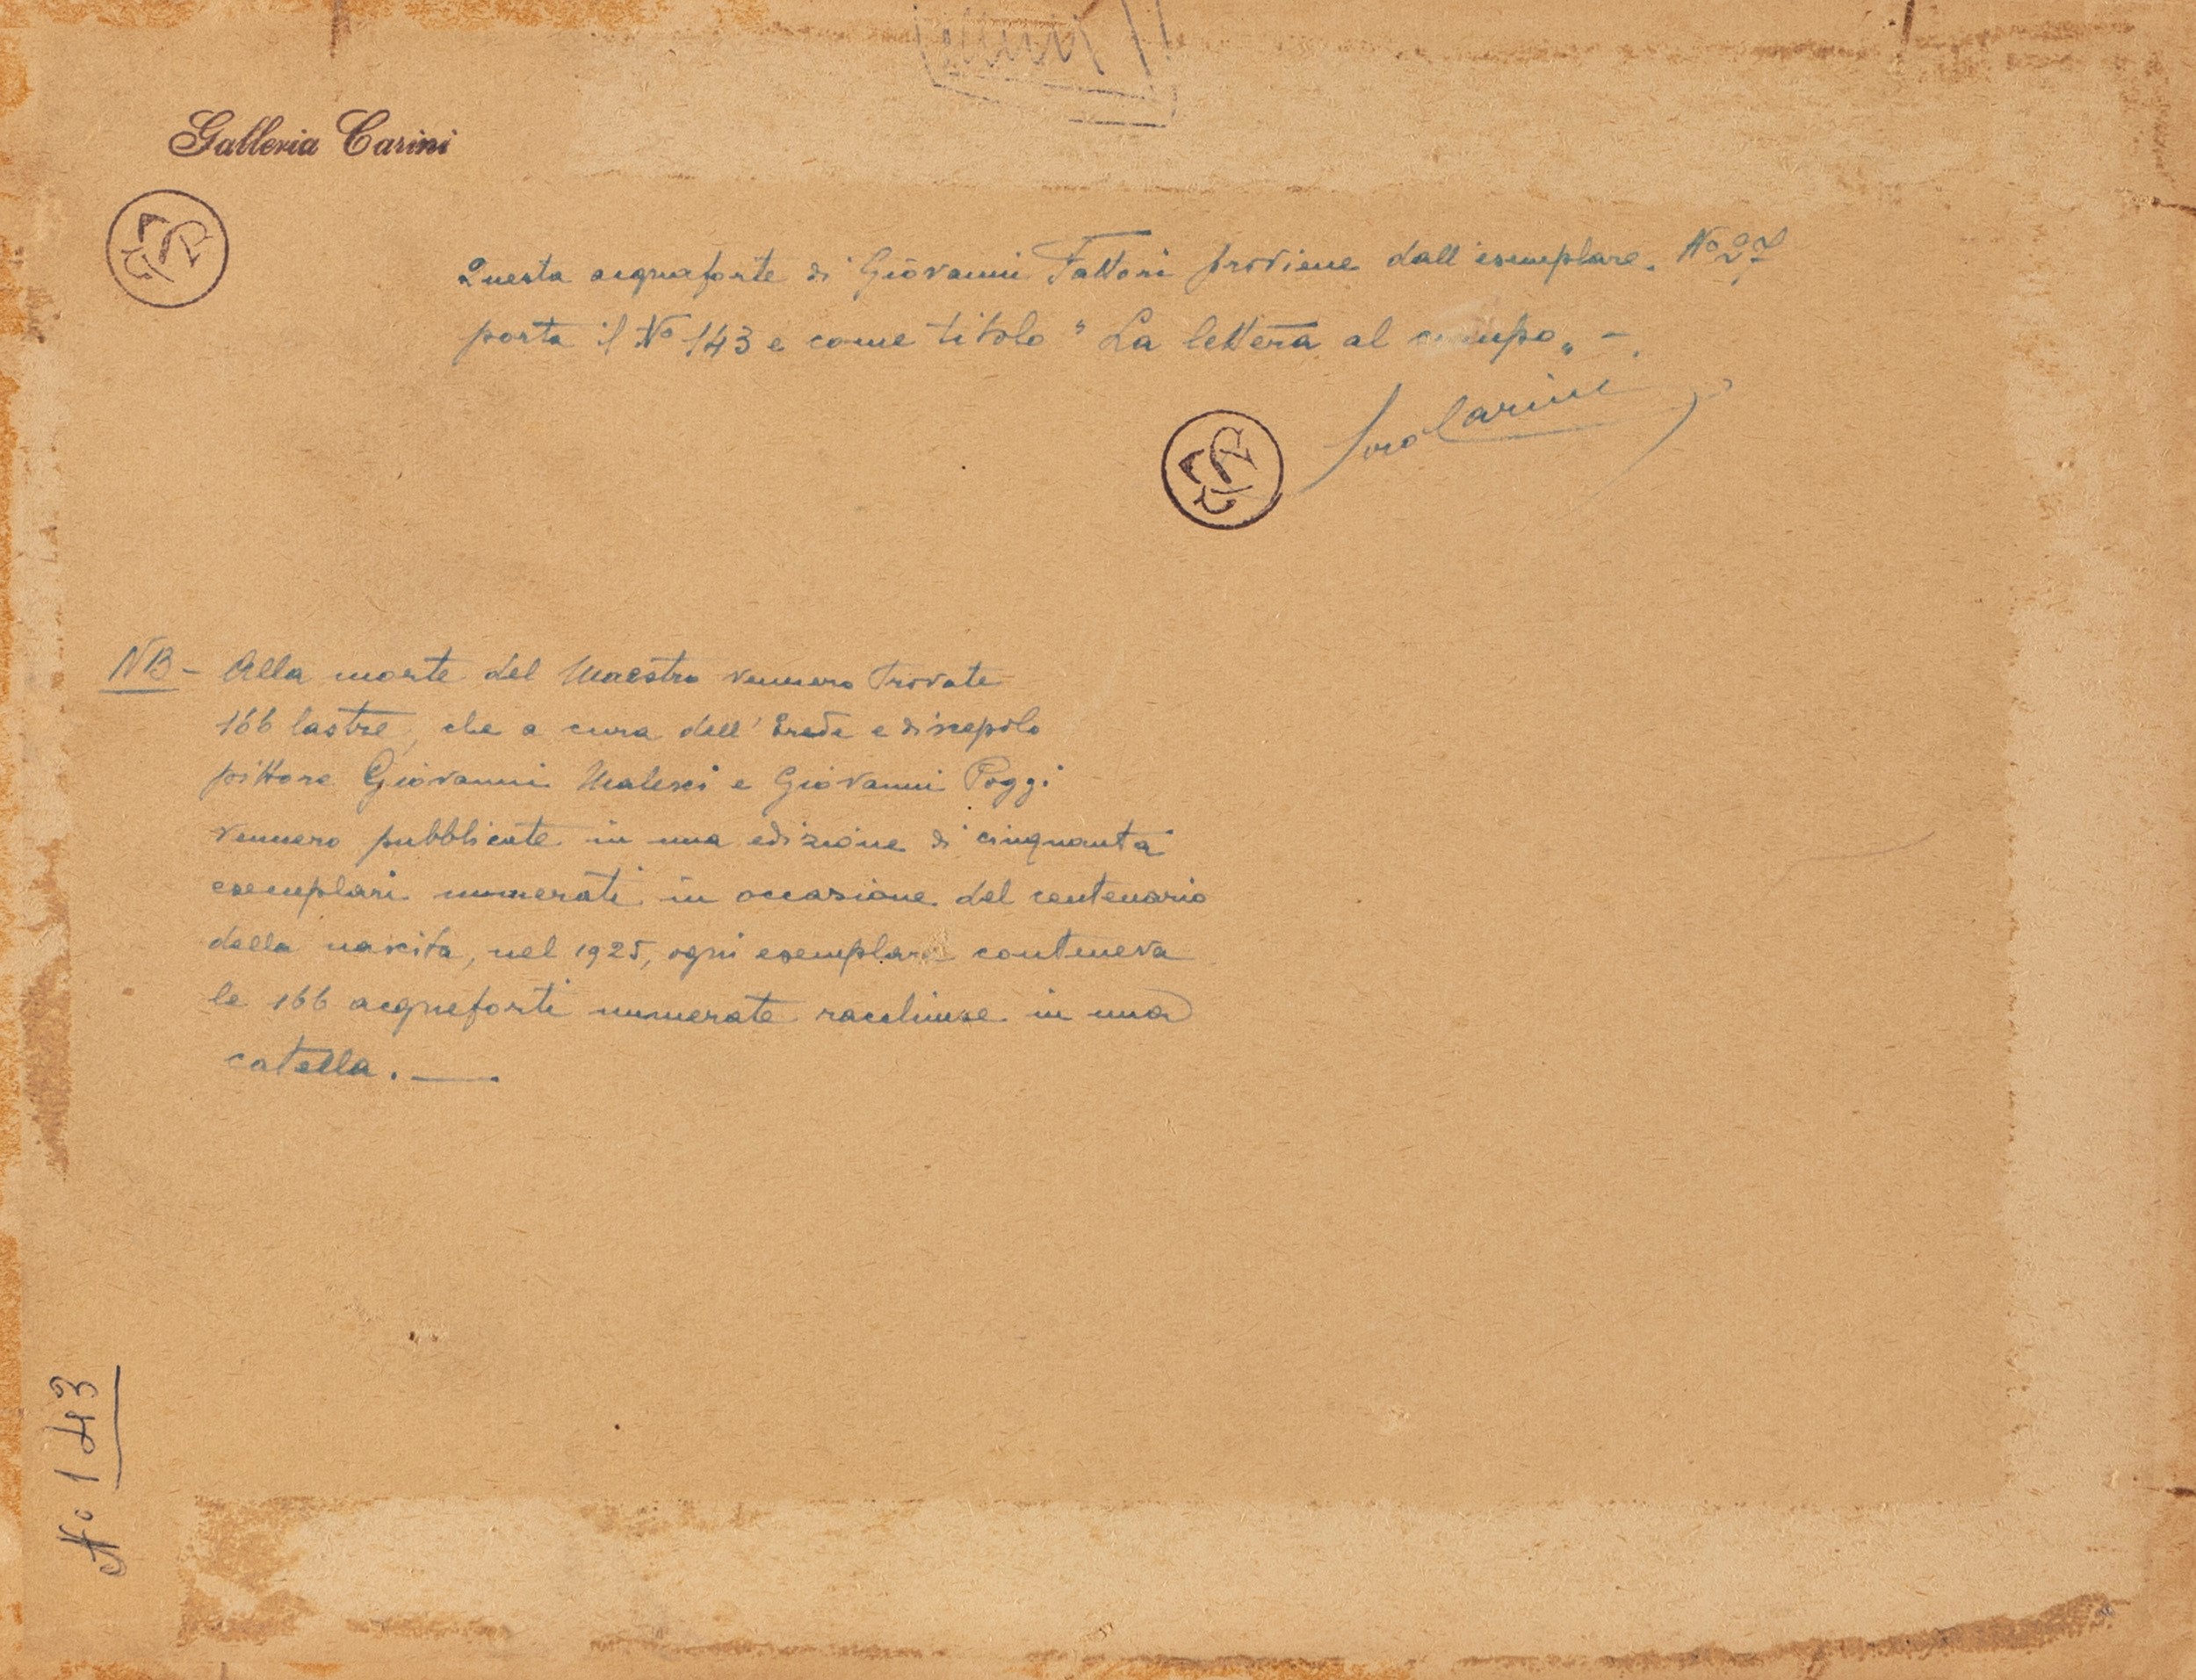 Galleria Carini
Questa acquaforte di Giovanni Fattori proviene dall'esemplare. No 27
porta il No 143 e come titolo "La lettera al campo„ -.
Carini
NB - Alla morte del Maestro vennero trovate
166 lastre, che a cura dell'Erede e discepolo
pittore Giovanni Malesci e Giovanni Poggi
vennero pubblicate in una edizione di cinquanta
esemplari numerati in occasione del centenario
della nascita, nel 1925, ogni esemplare conteneva
le 166 acqueforti numerate racchiuse in una
catella. —
No 143